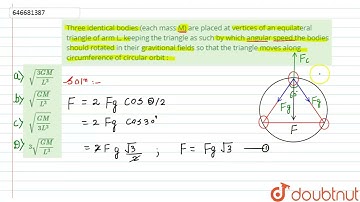 646681387
Three identical bodies (each mass M) are placed at vertices of an equilateral
triangle of arm L, keeping the triangle as such by which angular speed the bodies
should rotated in their gravitional fields so that the triangle moves along
circumference of circular orbit :
a) √3GM/L³
b) √GM/L³
c) √GM/3L³
D) 3√GM/L³
Sol:-
F = 2 Fg cos θ/2
= 2 Fg cos 30°
= 2 Fg √3/2 ; F = Fg √3 — ①
Fc
θ
Fg
Fg
F
doubtnut